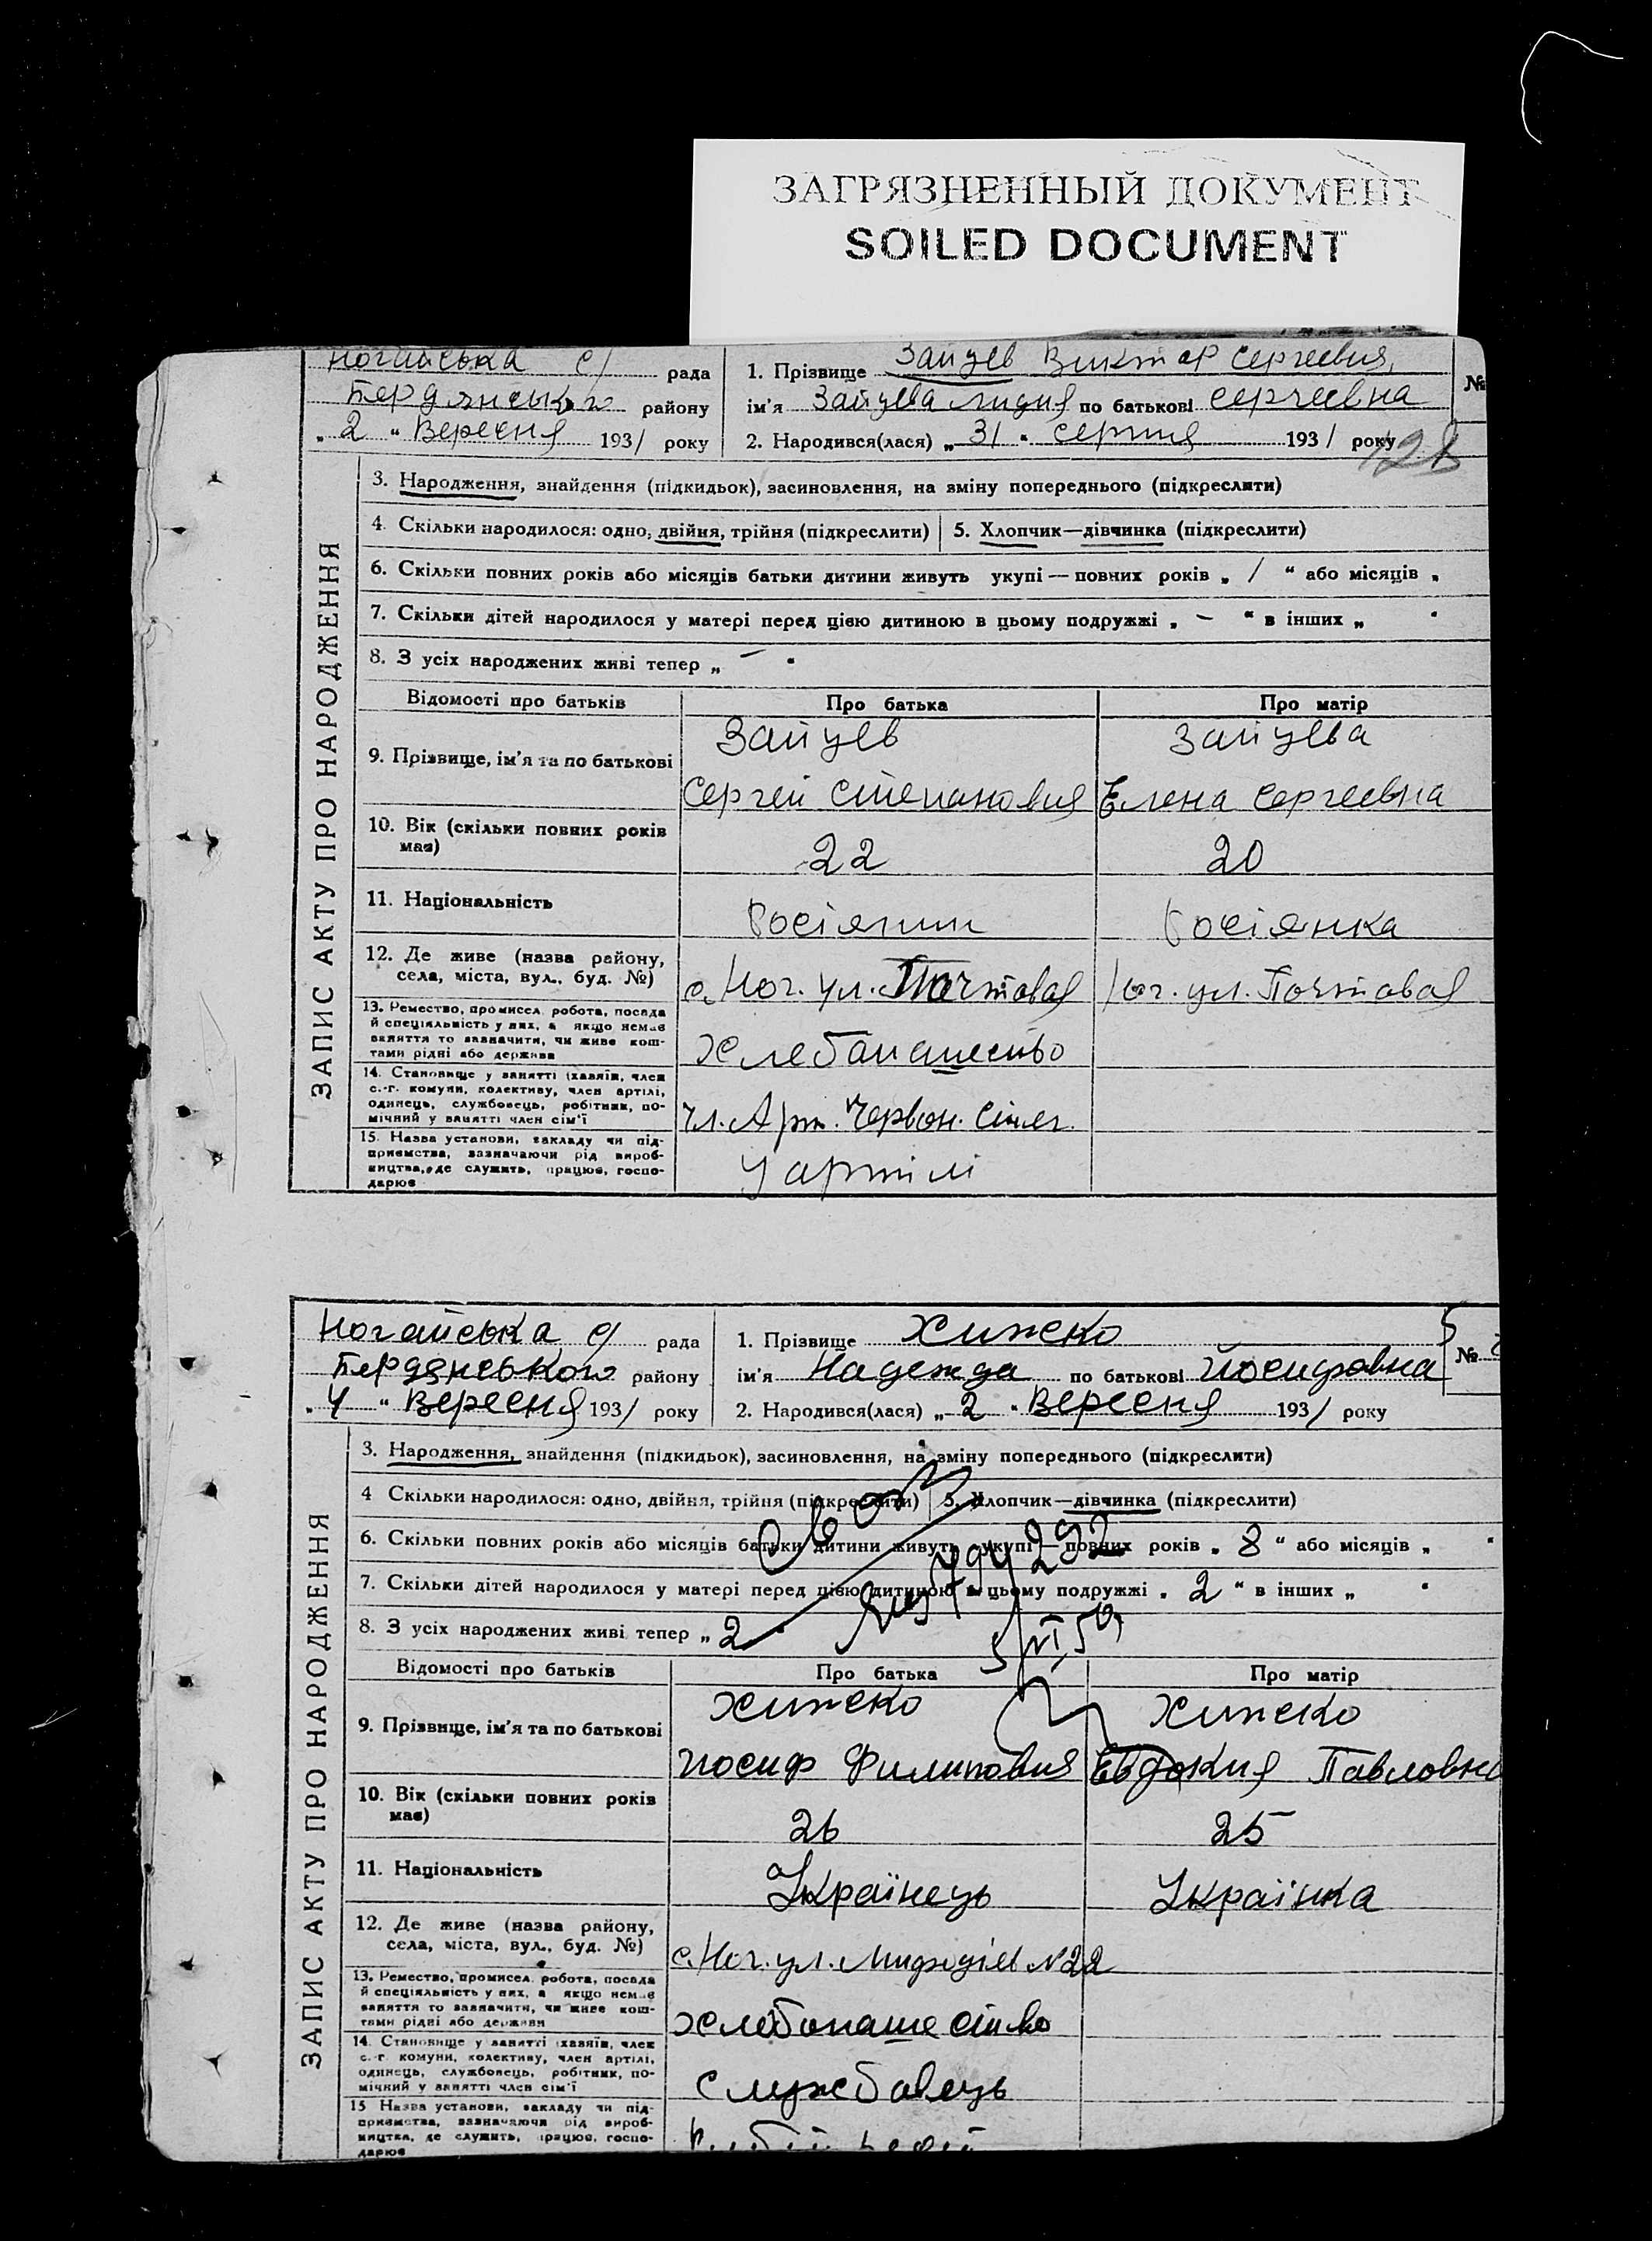 ЗАГРЯЗНЕННЫЙ ДОКУМЕНТ
SOILED DOCUMENT
Ногайська с/ рада
Бердянського району
„ 2 “ Вересня 1931 року
1. Прізвище Зайцев Виктор Сергеевич,
ім'я Зайцева Лидия по батькові Сергеевна
2. Народився(лася) „ 31 “ серпня 1931 року
№
ЗАПИС АКТУ ПРО НАРОДЖЕННЯ
3. Народження, знайдення (підкидьок), засиновлення, на зміну попереднього (підкреслити)
4. Скільки народилося: одно, двійня, трійня (підкреслити) 5. Хлопчик—дівчинка (підкреслити)
6. Скільки повних років або місяців батьки дитини живуть укупі — повних років „ 1 “ або місяців „
7. Скільки дітей народилося у матері перед цією дитиною в цьому подружжі „ – “ в інших „ “
8. З усіх народжених живі тепер „ – “
Відомості про батьків Про батька Про матір
9. Прізвище, ім'я та по батькові Зайцев Зайцева
Сергей Степанович Елена Сергеевна
10. Вік (скільки повних років має) 22 20
11. Національність Росіянин Росіянка
12. Де живе (назва району, села, міста, вул., буд. №) с. Ног. ул. Почтовая Ног. ул. Почтовая
13. Ремество, промисел, робота, посада й спеціяльність у них, а якщо немає заняття то зазначити, чи живе коштами рідні або держава Хлебопашество
14. Становище у занятті (хазяїн, член с.-г. комуни, колективу, член артілі, одинець, службовець, робітник, помічний у занятті член сім'ї Чл. Арт. Червон. Степ.
15. Назва установи, закладу чи підприємства, зазначаючи рід виробництва, де служить, працює, господарює У артілі
Ногайська с/ рада
Бердянського району
„ 4 “ Вересня 1931 року
1. Прізвище Хижеко
ім'я Надежда по батькові Йосифовна
2. Народився(лася) „ 2 “ Вересня 1931 року
№
ЗАПИС АКТУ ПРО НАРОДЖЕННЯ
3. Народження, знайдення (підкидьок), засиновлення, на зміну попереднього (підкреслити)
4 Скільки народилося: одно, двійня, трійня (підкреслити) 5. Хлопчик—дівчинка (підкреслити)
6. Скільки повних років або місяців батьки дитини живуть укупі — повних років „ 8 “ або місяців „ “
7. Скільки дітей народилося у матері перед цією дитиною в цьому подружжі „ 2 “ в інших „ “
8. З усіх народжених живі тепер „ 2 “
Відомості про батьків Про батька Про матір
9. Прізвище, ім'я та по батькові Хижеко Хижеко
Иосиф Филипович Евдокия Павловна
10. Вік (скільки повних років має) 26 25
11. Національність Українець Українка
12. Де живе (назва району, села, міста, вул., буд. №) с. Ног. ул. №22
13. Ремество, промисел, робота, посада й спеціяльність у них, а якщо немає заняття то зазначити, чи живе коштами рідні або держави Хлебопашество
14. Становище у занятті (хазяїн, член с.-г. комуни, колективу, член артілі, одинець, службовець, робітник, помічний у занятті член сім'ї Службовець
15 Назва установи, закладу чи підприємства, зазначаючи рід виробництва, де служить, працює, господарює